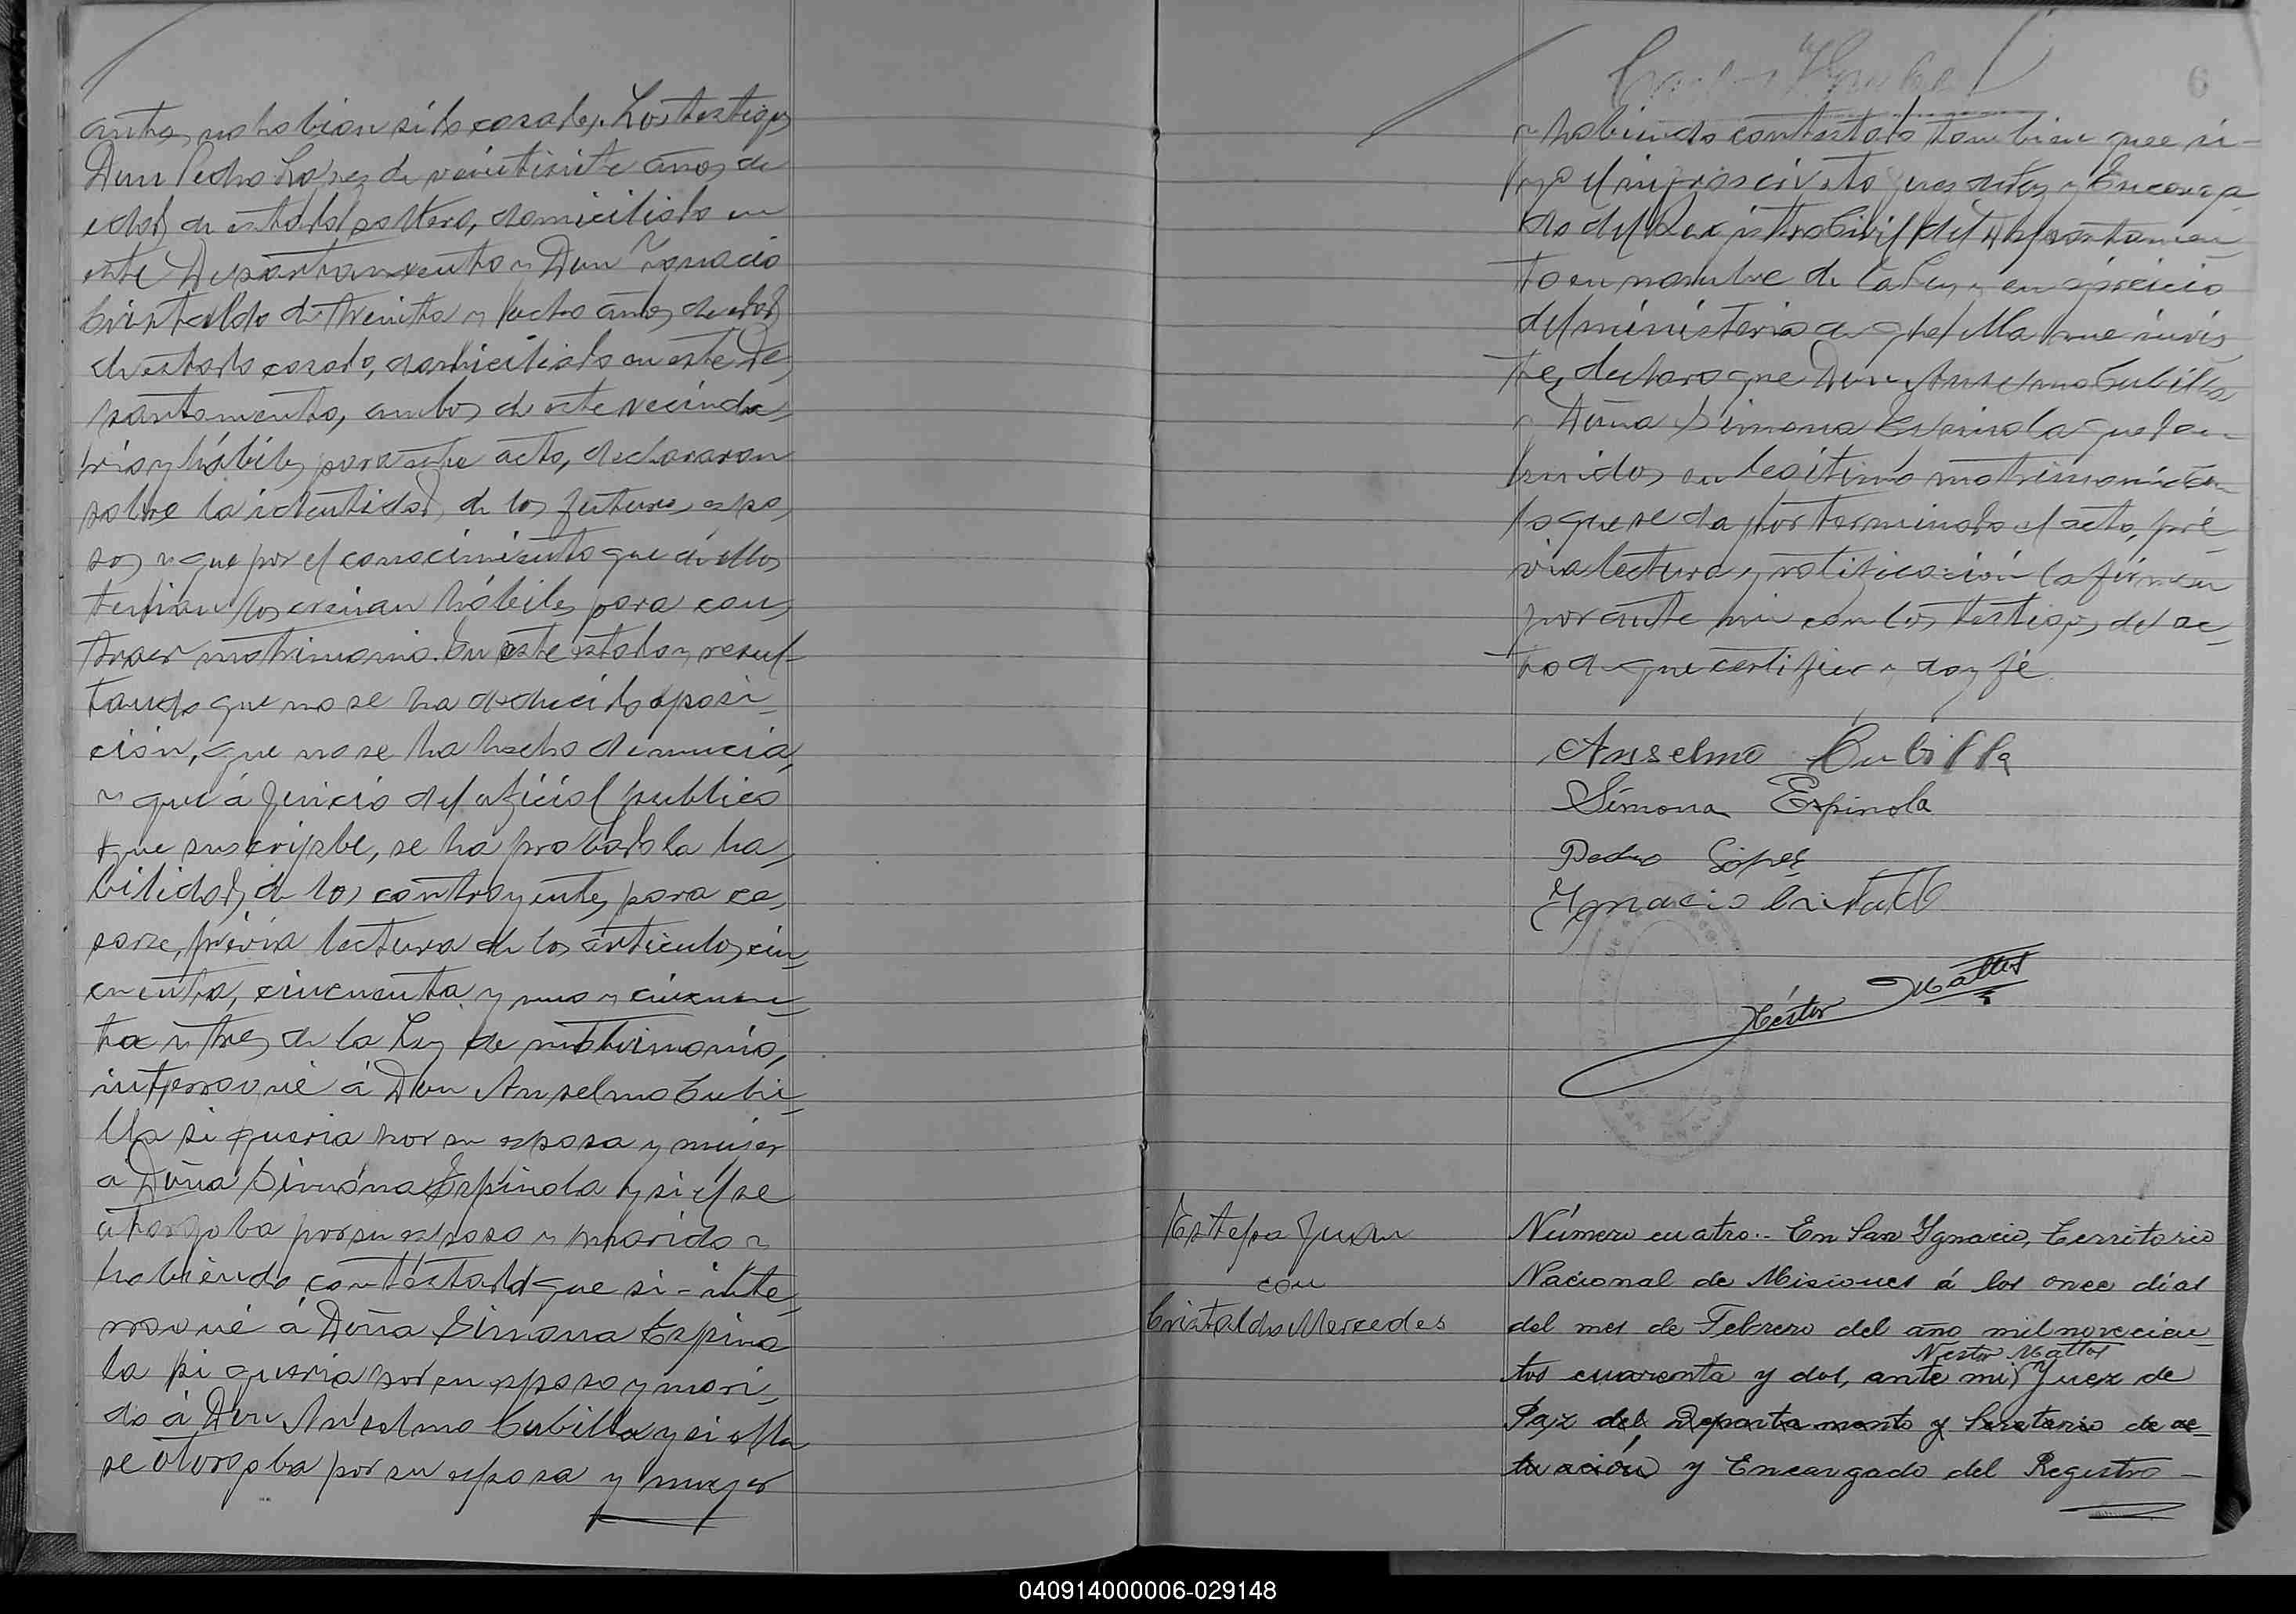 antes, no habian sido casados. Los testigos
Don Pedro Lopez de veintisiete años de
edad, de estado soltero, domiciliado en
este Departramento y Don Ygnacio
Cristaldo de treinta y ocho años de edad
de estado casado, domiciliado en este De-
partamento, ambos de este vecinda-
rio y hábiles para este acto, declararon
sobre la identidad, de los futuros espo-
sos y que por el conocimiento que de ellos
tenian los creian hábiles para con-
traer matrimonio. En este estado y resul-
tando que no se ha deducido oposi-
ción, que no se ha hecho denuncia,
y que á juicio del oficial publico
que suscripbe, se ha probado la ha-
bilidad, de los contrayentes para ca-
sarse, prévia lectura de los articulos cin-
cuenta, cincuenta y uno y cincuen-
ta y tres de la Ley de matrimonio,
interrogué á Don Anselmo Cubi-
lla si queria por su esposa y mujer
a Doña Simona Espinola y si él se
otorgaba por su esposo y marido y
habiendo contestado que si - inte-
rrogué á Doña Simona Espino
la si queria por su esposo y mari-
do á Don Anselmo Cubilla y si ella
se otorgaba por su esposa y mujer
6
y habiendo contestado tambien que si -
yo el infrascrivto Juez de Paz y Encarga
do del Registro Civil del Departamen
to en nombre de la Ley y en ejercicio
del ministerio de que ella me invis
te, declaro que Don Anselmo Cubilla
y Doña Simona Espinola quedan
unidos en legitimo matrimonio con
lo que se da por terminado el acto, pré-
via lectura y ratificación la firman
por ante mi con los testigos del ac-
to de que certifico y doy fé.
Anselmo Cubilla
Simona Espinola
Pedro López
Ygnacio Cristaldo
Néstor Mattos
Estepa Juan
con
Cristaldo Mercedes
Número cuatro.- En San Ygnacio, Territorio
Nacional de Misiones á los once días
del mes de Febrero del año mil novecien-
Nestor Mattos
tos cuarenta y dos, ante mi, Juez de
Paz del Departamento y Secretario de ac-
tuación y Encargado del Registro -
040914000006-029148